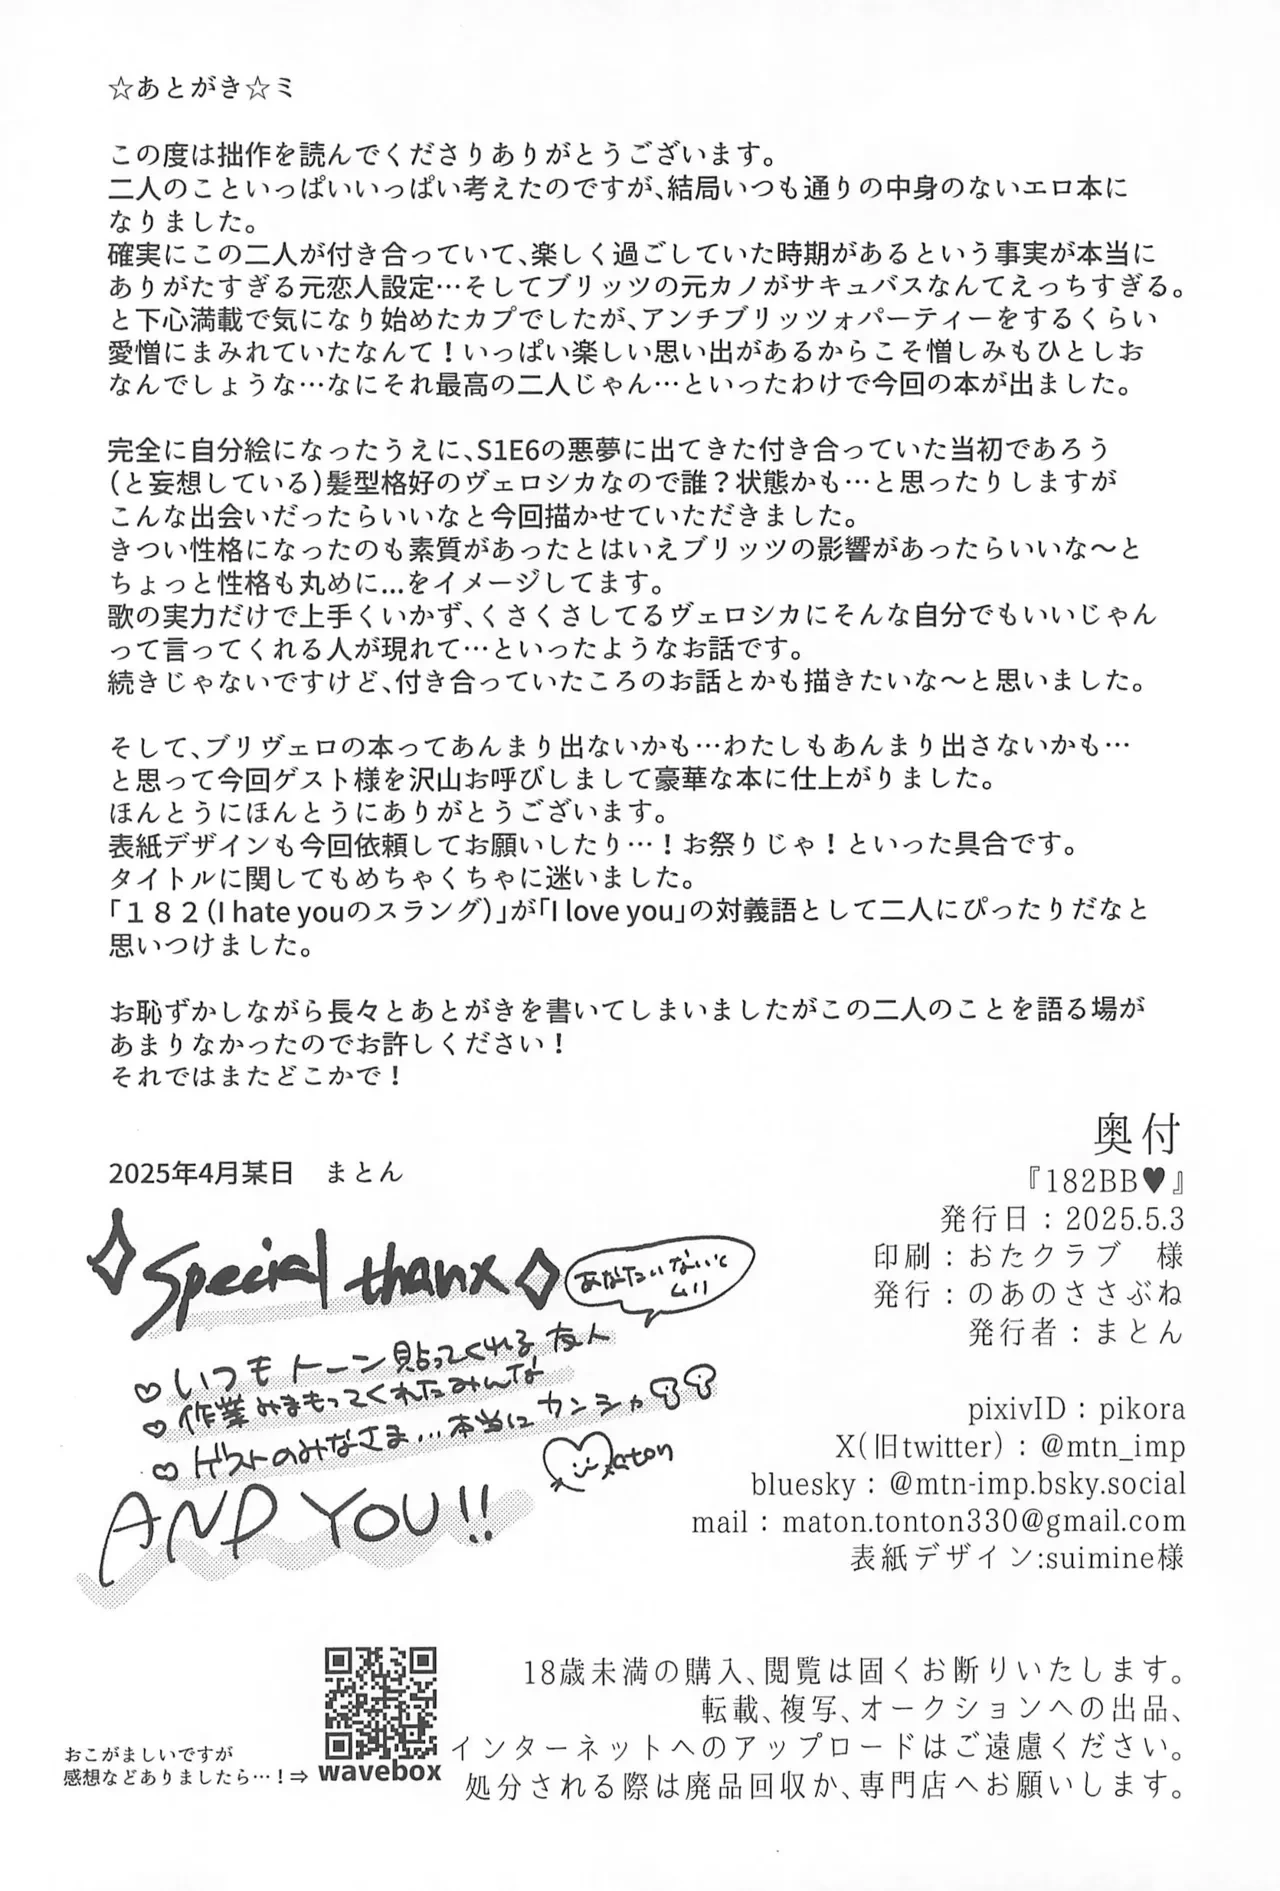 ☆あとがき☆ミ
この度は拙作を読んでくださりありがとうございます。
二人のこといっぱいいっぱい考えたのですが、結局いつも通りの中身のないエロ本に
なりました。
確実にこの二人が付き合っていて、楽しく過ごしていた時期があるという事実が本当に
ありがたすぎる元恋人設定…そしてブリッツの元カノがサキュバスなんてえっちすぎる。
と下心満載で気になり始めたカプでしたが、アンチブリッツォパーティーをするくらい
愛憎にまみれていたなんて！いっぱい楽しい思い出があるからこそ憎しみもひとしお
なんでしょうな…なにそれ最高の二人じゃん…といったわけで今回の本が出ました。
完全に自分絵になったうえに、S1E6の悪夢に出てきた付き合っていた当初であろう
（と妄想している）髪型格好のヴェロシカなので誰？状態かも…と思ったりしますが
こんな出会いだったらいいなと今回描かせていただきました。
きつい性格になったのも素質があったとはいえブリッツの影響があったらいいな～と
ちょっと性格も丸めに...をイメージしてます。
歌の実力だけで上手くいかず、くさくさしてるヴェロシカにそんな自分でもいいじゃん
って言ってくれる人が現れて…といったようなお話です。
続きじゃないですけど、付き合っていたころのお話とかも描きたいな～と思いました。
そして、ブリヴェロの本ってあんまり出ないかも…わたしもあんまり出さないかも…
と思って今回ゲスト様を沢山お呼びしまして豪華な本に仕上がりました。
ほんとうにほんとうにありがとうございます。
表紙デザインも今回依頼してお願いしたり…！お祭りじゃ！といった具合です。
タイトルに関してもめちゃくちゃに迷いました。
「１８２（I hate youのスラング）」が「I love you」の対義語として二人にぴったりだなと
思いつけました。
お恥ずかしながら長々とあとがきを書いてしまいましたがこの二人のことを語る場が
あまりなかったのでお許しください！
それではまたどこかで！
2025年4月某日　まとん
Special thanx
あなたがいないと
ムリ
♡いつもトーン貼ってくれる友人
♡作業みまもってくれたみんな
♡ゲストのみなさま…本当にカンシャ
maton
AND YOU!!
奥付
『182BB♥』
発行日：2025.5.3
印刷：おたクラブ　様
発行：のあのささぶね
発行者：まとん
pixivID：pikora
X（旧twitter）：@mtn_imp
bluesky：@mtn-imp.bsky.social
mail：maton.tonton330@gmail.com
表紙デザイン:suimine様
おこがましいですが
感想などありましたら…！⇒
wavebox
18歳未満の購入、閲覧は固くお断りいたします。
転載、複写、オークションへの出品、
インターネットへのアップロードはご遠慮ください。
処分される際は廃品回収か、専門店へお願いします。